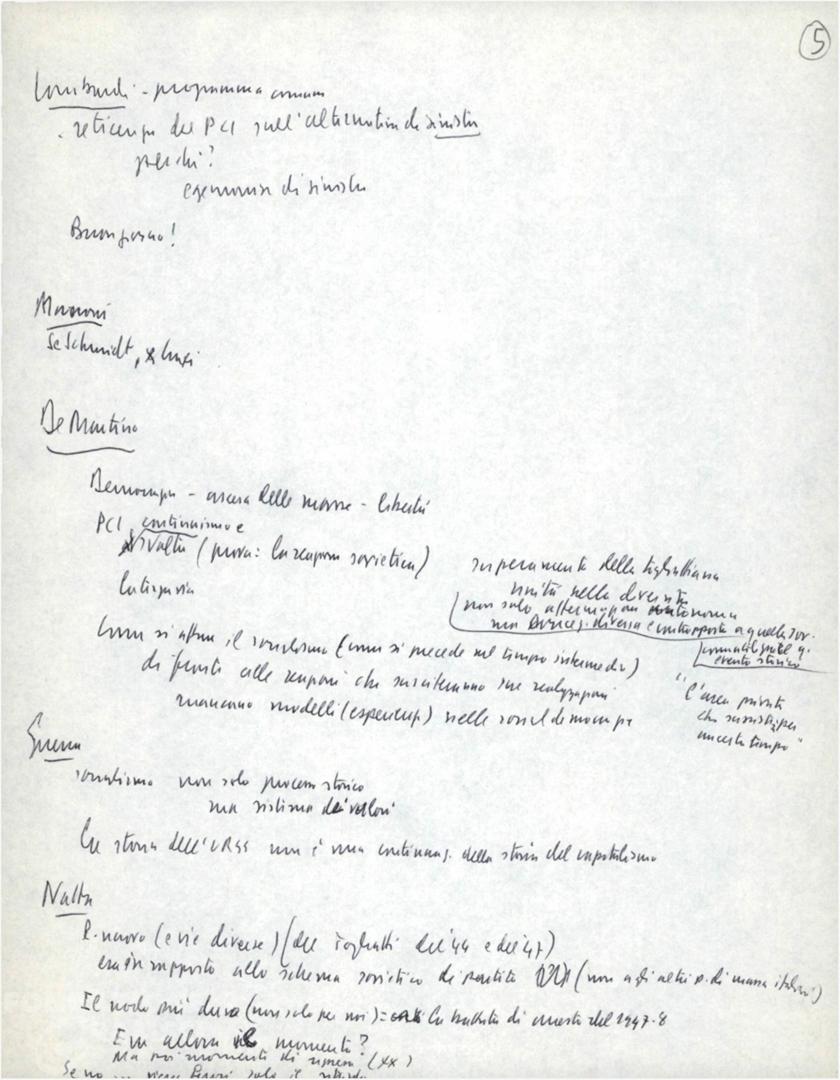 5
Lombardi - programma comune
. reticenza del PCI sull'alternativa di sinistra
perché?
egemonia di sinistra
Buongiorno!
Se Schmidt,
De Martino
Democrazia - ascesa delle masse - libertà
PCI continuismo e
svolta (prova: la reazione sovietica)
superamento della togliattiana
unità nella diversità
non solo affermazione autonoma
ma diversa e contrapposta a quella sov.
Come si attua il socialismo (come si procede nel tempo intermedio)
evento storico
di fronte alle reazioni che susciteranno sue realizzazioni
"l'area privata
mancano modelli (esperienze) nelle socialdemocrazie
che
tempo"
Guerra
socialismo non solo processo storico
ma sistema dei valori
La storia dell'URSS non è una continuaz. della storia del capitalismo
Natta
P. nuovo (e vie diverse) (del Togliatti del '44 e del '47)
era in rapporto allo schema sovietico di partito (non agli altri p. di massa italiani)
Il nodo più duro (non solo per noi) = la battuta di arresto del 1947-8
Era allora il momento?
Ma poi momenti di ripresa (XX)
Se no solo il